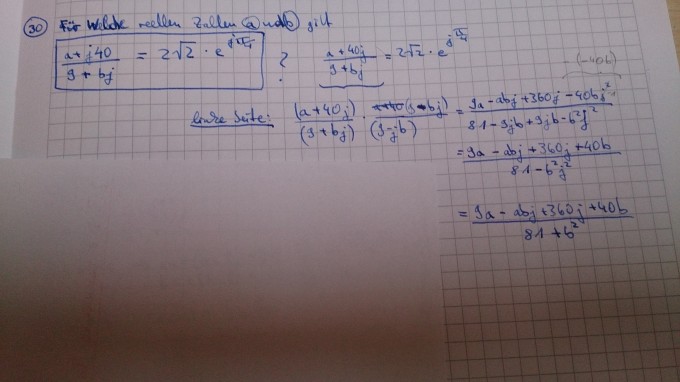 30 Für welche reellen Zahlen a und b gilt
(a + j40)/(9 + bj) = 2√2 · e^(jπ/4) ? (a + 40j)/(9 + bj) = 2√2 · e^(jπ/4)
(-40b)
linke Seite: (a + 40j)/(9 + bj) · (9 - bj)/(9 - jb) = (9a - abj + 360j - 40bj²)/(81 - 9jb + 9jb - b²j²)
= (9a - abj + 360j + 40b)/(81 - b²j²)
= (9a - abj + 360j + 40b)/(81 + b²)